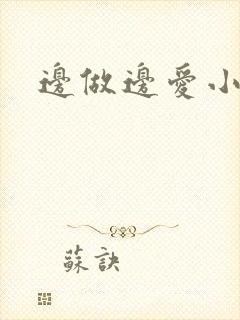 邊做邊愛小
蘇訣